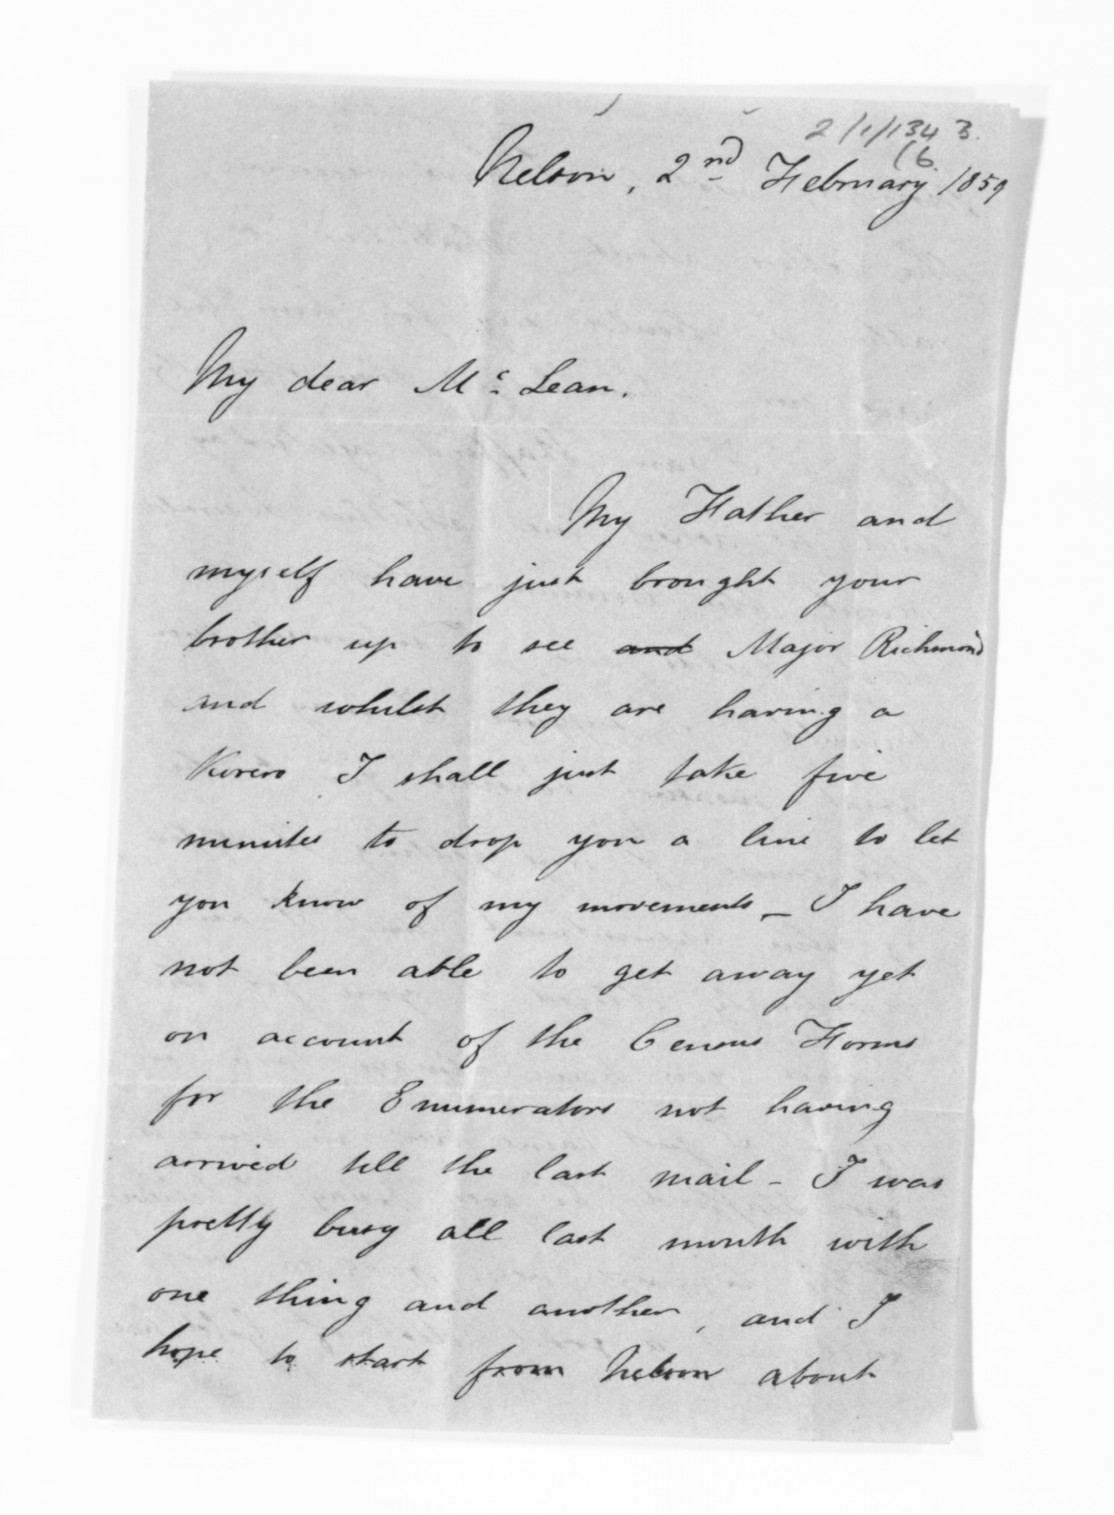 2/1/134 B.
16.
Nelson, 2nd February 1859
My dear Mc Lean.
My Father and
myself have just brought your
brother up to see and Major Richmond
and whilst they are having a
Korero I shall just take five
minutes to drop you a line to let
you know of my movements_ I have
not been able to get away yet
on account of the Census Forms
for the Enumerators not having
arrived till the last mail - I was
pretty busy all last month with
one thing and another, and I
hope to start from Nelson about